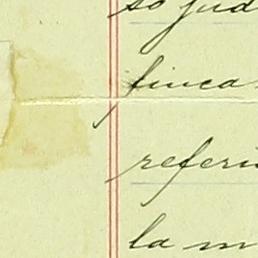 so jud
finca
referi
la m